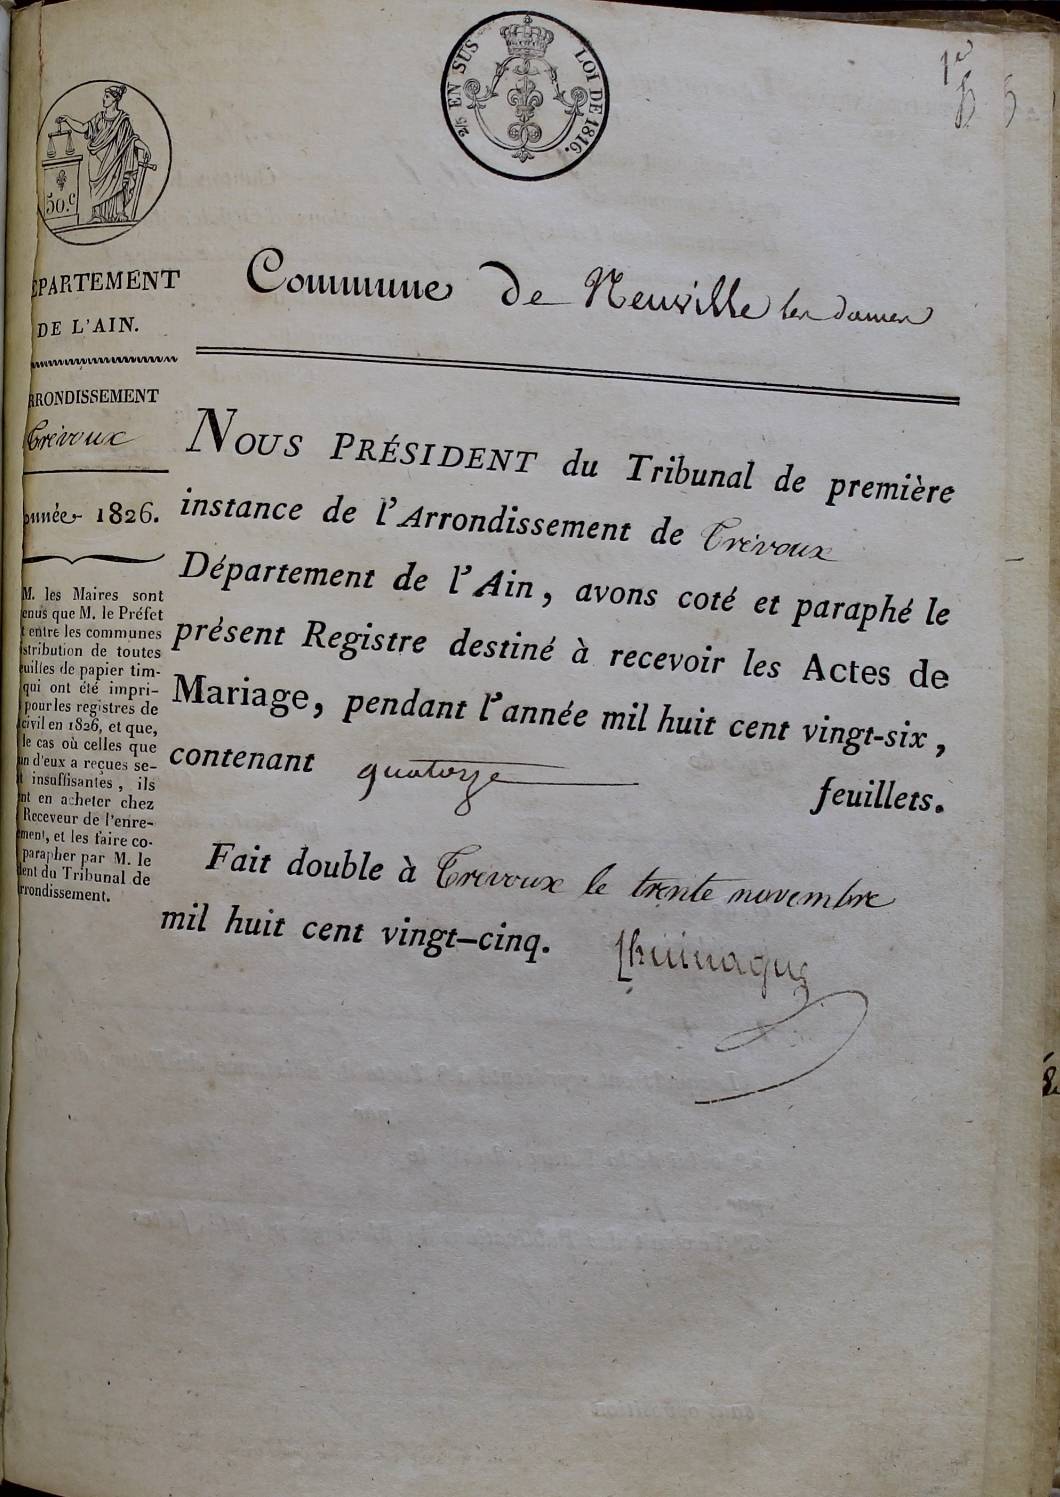 2/5 EN SUS LOI DE 1816.
1er
50.c
EPARTEMENT
DE L'AIN.
RRONDISSEMENT
Trévoux
année 1826.
M. les Maires sont
enus que M. le Préfet
t entre les communes
stribution de toutes
euilles de papier tim-
qui ont été impri-
pour les registres de
civil en 1826, et que,
le cas où celles que
un d'eux a reçues se-
t insuffisantes, ils
nt en acheter chez
Receveur de l'enre-
ment, et les faire co-
parapher par M. le
dent du Tribunal de
rrondissement.
Commune de Neuville les dames
NOUS PRÉSIDENT du Tribunal de première
instance de l'Arrondissement de Trévoux
Département de l'Ain, avons coté et paraphé le
présent Registre destiné à recevoir les Actes de
Mariage, pendant l'année mil huit cent vingt-six,
contenant quatorze feuillets.
Fait double à Trévoux le trente novembre
mil huit cent vingt-cinq.